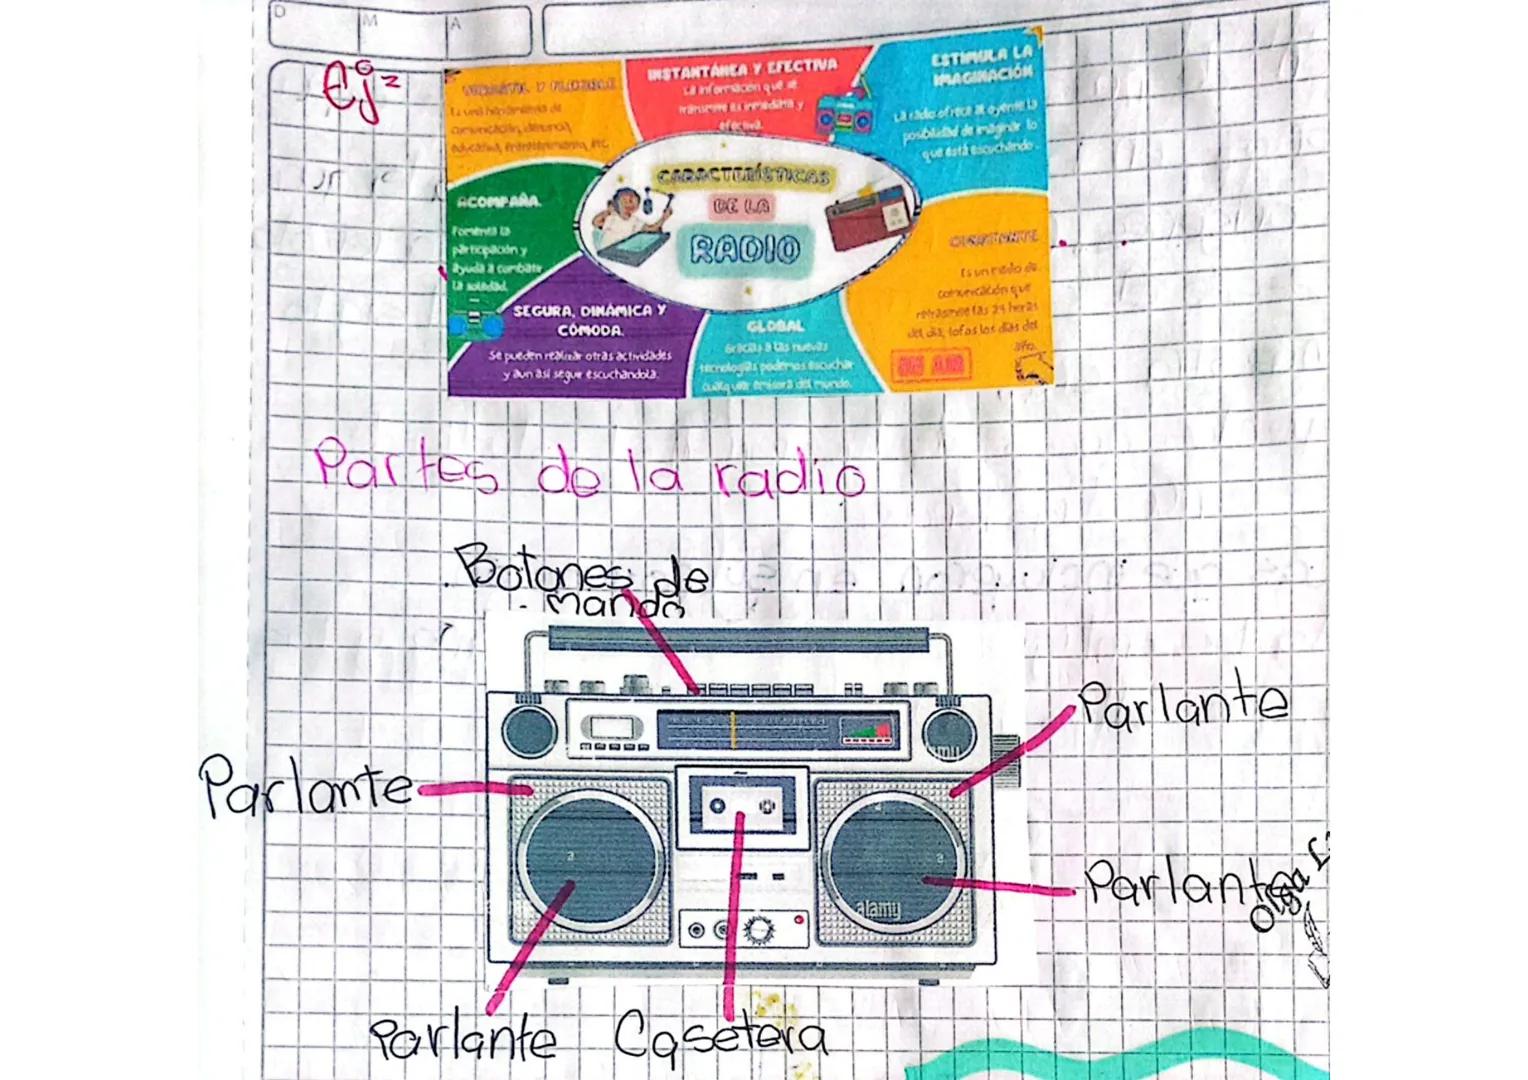 D M A
Ej 2
VERSÁTIL Y FLEXIBLE
Es una herramienta de
comunicación, denuncia,
educativa, entretenimiento, etc.
INSTANTÁNEA Y EFECTIVA
La información que se
transmite es inmediata y
efectiva.
ESTIMULA LA
IMAGINACIÓN
La radio ofrece al oyente la
posibilidad de imaginar lo
que está escuchando.
ACOMPAÑA.
Fomenta la
participación y
ayuda a combatir
la soledad.
CARACTERÍSTICAS
DE LA
RADIO
CONSTANTE
Es un medio de
comunicación que
retrasmite las 24 horas
del día, tofos los días del
año.
SEGURA, DINÁMICA Y
CÓMODA.
Se pueden realizar otras actividades
y aun así seguir escuchandola.
GLOBAL
Gracias a las nuevas
tecnologías podemos escuchar
cualquier emisora del mundo.
ON AIR
Partes de la radio
Botones de
mando
Parlante
Parlante
Parlante
Olga L
alamy
Parlante Casetera